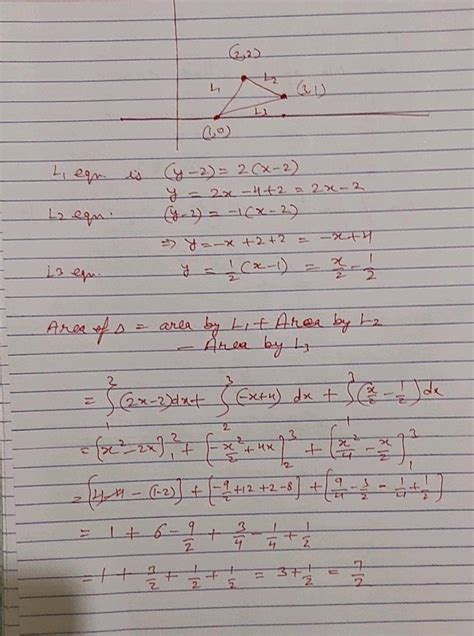 (2,2)
L1 L2
(3,1)
L3
(1,0)
L1 eqn is (y-2) = 2(x-2)
y = 2x-4+2 = 2x-2
L2 eqn. (y-2) = -1(x-2)
⇒ y = -x+2+2 = -x+4
L3 eqn. y = 1/2 (x-1) = x/2 - 1/2
Area of Δ = area by L1 + Area by L2
- Area by L3
= ∫_1^2 (2x-2)dx + ∫_2^3 (-x+4) dx + ∫_1^3 (x/2 - 1/2) dx
= [x²-2x]_1^2 + [-x²/2 + 4x]_2^3 + [x²/4 - x/2]_1^3
= [4-4 - (1-2)] + [-9/2 + 12 + 2 - 8] + [9/4 - 3/2 - 1/4 + 1/2]
= 1 + 6 - 9/2 + 3/4 - 1/4 + 1/2
= 1 + 3/2 + 1/2 + 1/2 = 3 + 1/2 = 7/2